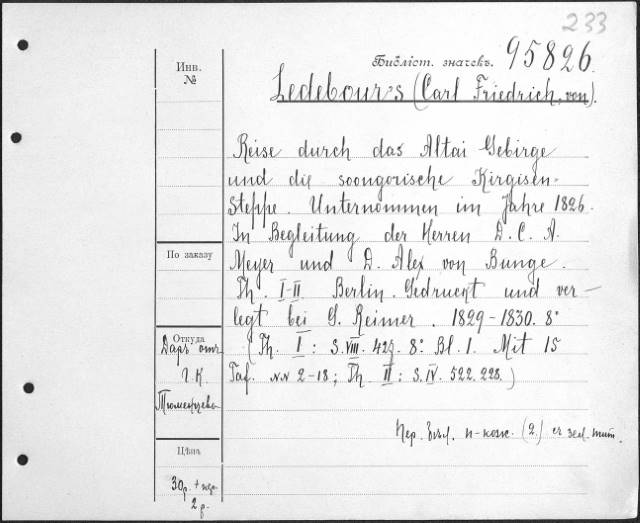 233
Библіот. значекъ. 95826.
Инв.
№
Ledebour's (Carl Friedrich, von).
Reise durch das Altai Gebirge
und die soongorische Kirgisen-
Steppe. Unternommen im Jahre 1826.
In Begleitung der Herren D. C. A.
Meyer und D. Alex von Bunge.
Th. I-II Berlin. Gedruckt und ver-
legt bei G. Reimer. 1829-1830. 8°
(Th. I: S. VIII. 427. 8° Bl. 1. Mit 15
Taf. NN 2-18; Th. II: S. IV. 522. 228.)
По заказу
Откуда
Даръ отъ
Г. К.
Тюменцева
Цѣна
30р. +
2 р.
Пер. (2.) съ зол. тит.